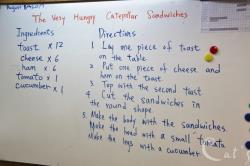 The Very Hungry Caterpillar Sandwiches
Ingredients
Toast x 12
Cheese x 6
ham x 6
tomato x 1
cucumber x 1
Directions
1. Lay one piece of toast
on the table.
2. Put one piece of cheese and
ham on the toast.
3. Top with the second toast
4. Cut the sandwiches in
the round shape.
5. Make the body with the sandwiches.
Make the head with a small tomato
Make the legs with a cucumber